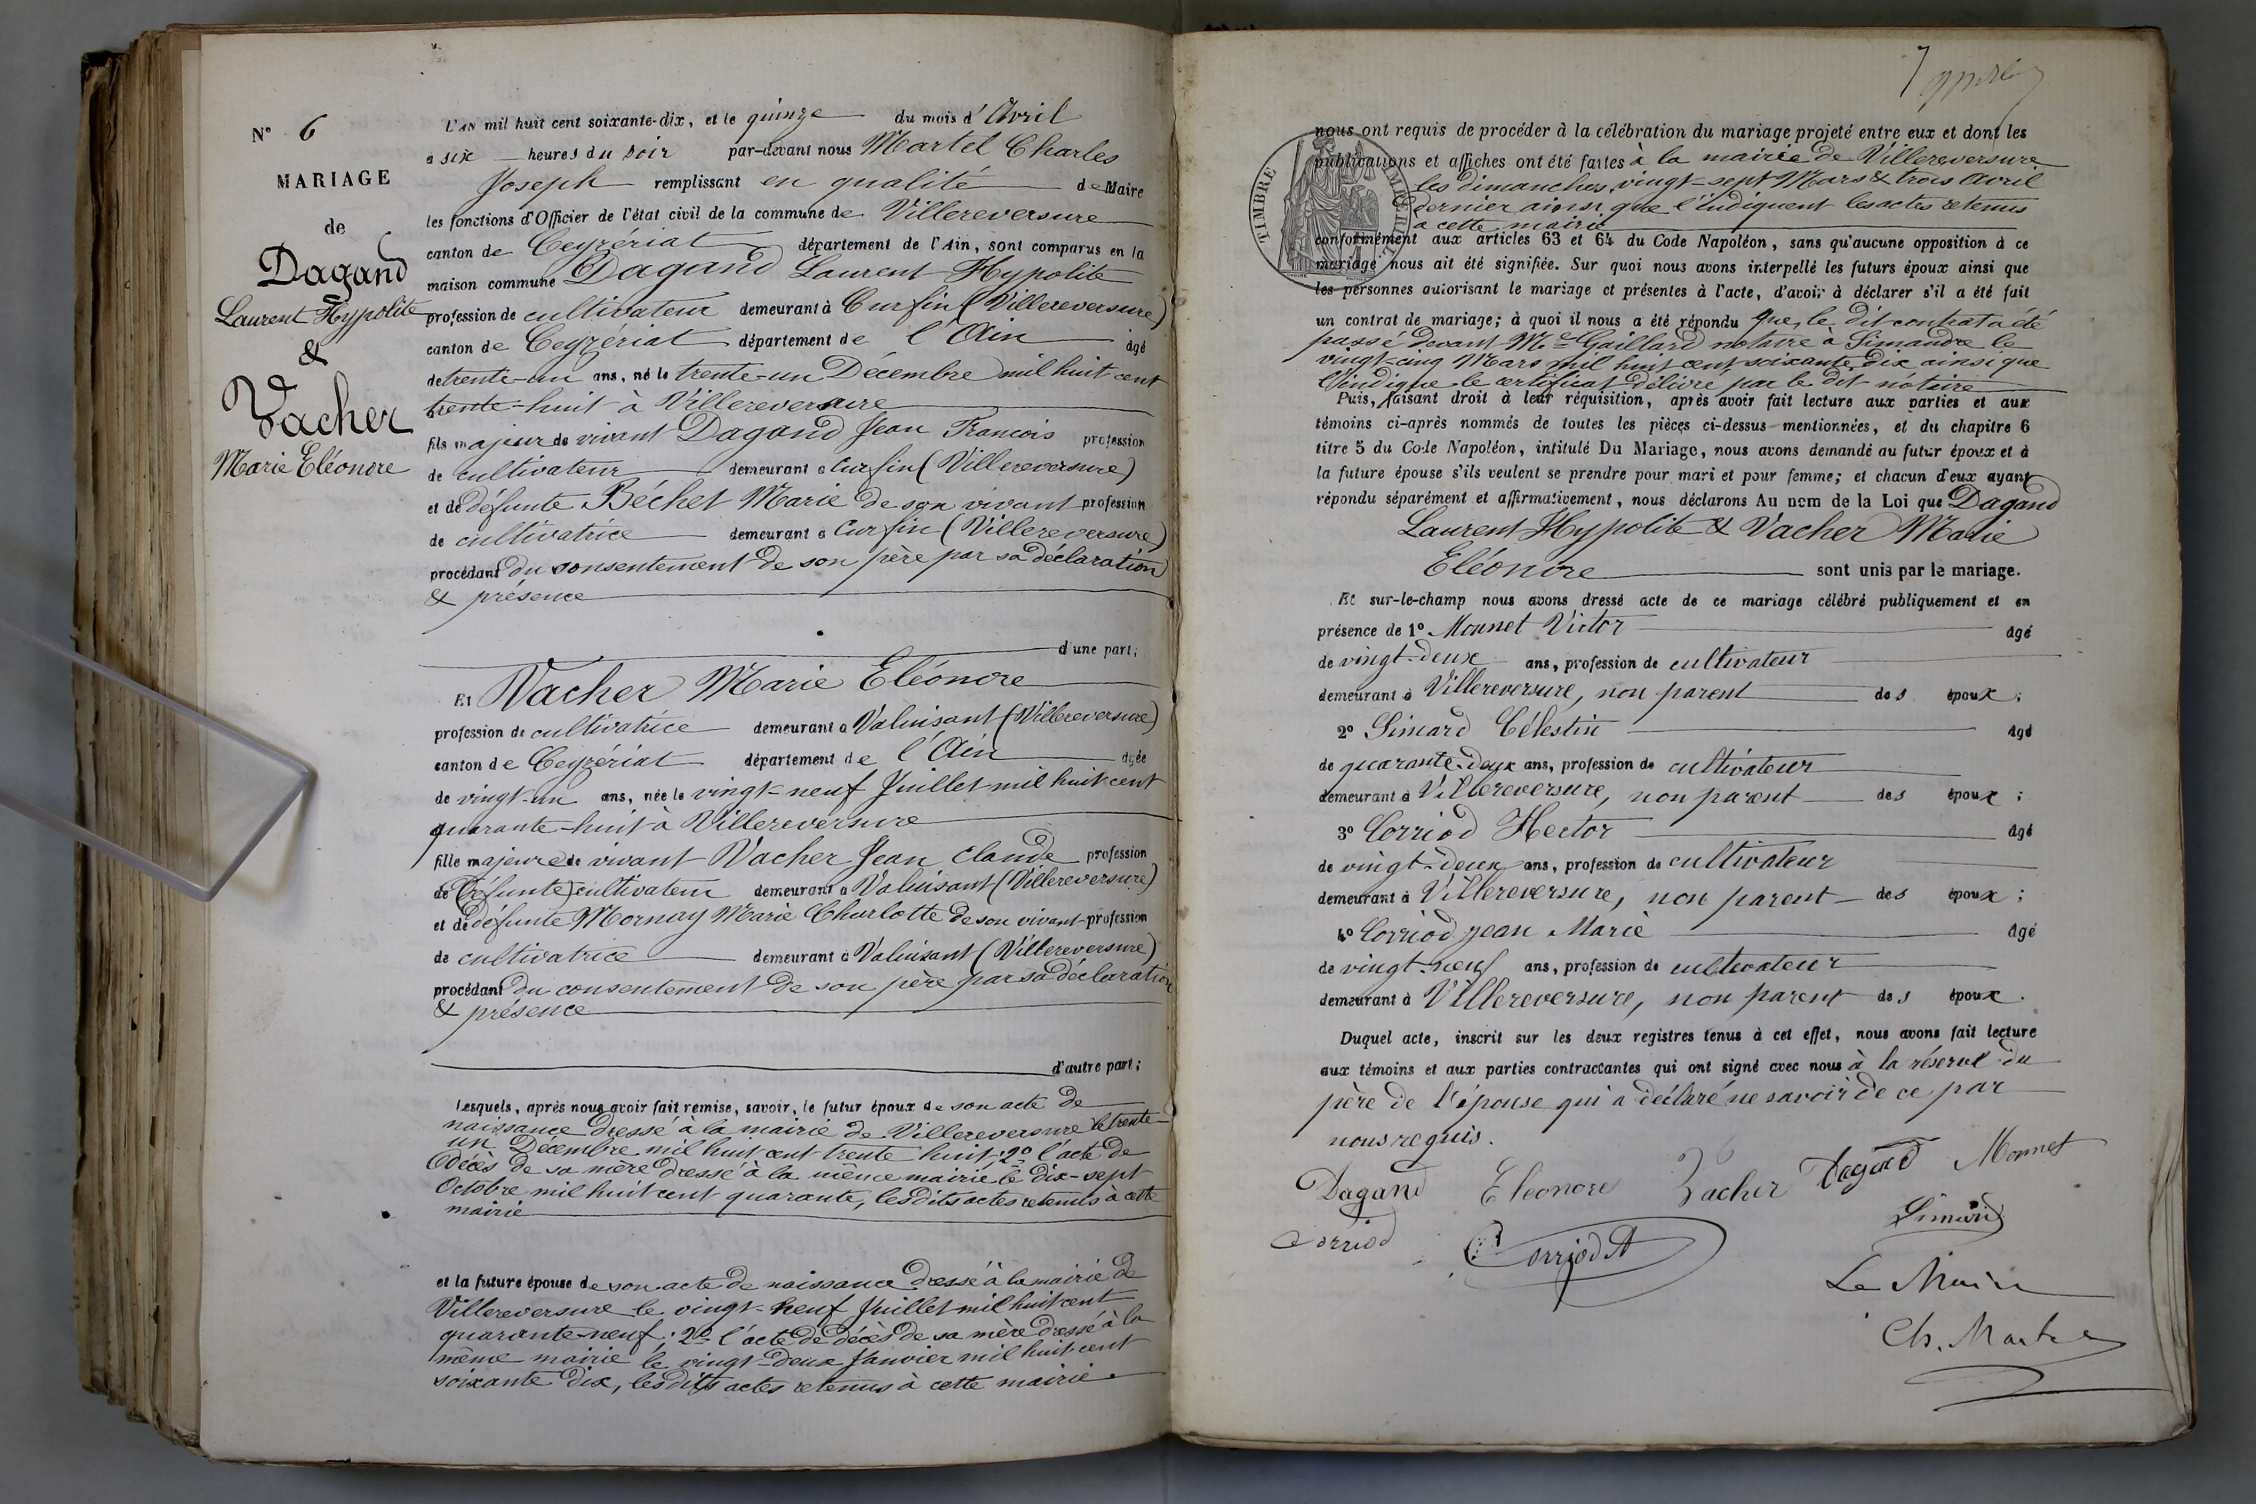 N° 6
MARIAGE
de
Dagand
Laurent Hypolite
&
Vacher
Marie Eléonore
L'AN mil huit cent soixante-dix, et le quinze du mois d'Avril
à six heures du soir par-devant nous Martel Charles
Joseph remplissant en qualité de Maire
les fonctions d'Officier de l'état civil de la commune de Villereversure
canton de Ceyzériat département de l'Ain, sont comparus en la
maison commune Dagand Laurent Hypolite
profession de cultivateur demeurant à Curfin (Villereversure)
canton de Ceyzériat département de l'Ain âgé
de trente-un ans, né le trente-un Décembre mil huit cent
trente-huit à Villereversure
fils majeur de vivant Dagand Jean Francois profession
de cultivateur demeurant à Curfin (Villereversure)
et de défunte Béchet Marie de son vivant profession
de cultivatrice demeurant à Curfin (Villereversure)
procédant du consentement de son père par sa déclaration
& présence
d'une part;
Et Vacher Marie Eléonore
profession de cultivatrice demeurant à Valuisant (Villereversure)
canton de Ceyzériat département de l'Ain âgée
de vingt-un ans, née le vingt-neuf Juillet mil huit cent
quarante-huit à Villereversure
fille majeure de vivant Vacher Jean Claude profession
de (défunte) cultivateur demeurant à Valuisant (Villereversure)
et de défunte Mornay Marie Charlotte de son vivant profession
de cultivatrice demeurant à Valuisant (Villereversure)
procédant du consentement de son père par sa déclaration
& présence
d'autre part;
Lesquels, après nous avoir fait remise, savoir, le futur époux de son acte de
naissance dressé à la mairie de Villereversure le trente-
un Décembre mil huit cent trente huit; 2° l'acte de
décès de sa mère dressé à la même mairie le dix-sept
Octobre mil huit cent quarante, les dits actes retenus à cette
mairie
et la future épouse de son acte de naissance dressé à la mairie de
Villereversure le vingt-neuf Juillet mil huit cent
quarante-neuf; 2° l'acte de décès de sa mère dressé à la
même mairie le vingt-deux Janvier mil huit cent
soixante dix, les dits actes retenus à cette mairie.
TIMBRE IMPÉRIAL
nous ont requis de procéder à la célébration du mariage projeté entre eux et dont les
publications et affiches ont été faites à la mairie de Villereversure
les dimanches vingt-sept Mars & trois Avril
dernier ainsi que l'indiquent les actes retenus
a cette mairie
conformément aux articles 63 et 64 du Code Napoléon, sans qu'aucune opposition à ce
mariage nous ait été signifiée. Sur quoi nous avons interpellé les futurs époux ainsi que
les personnes autorisant le mariage et présentes à l'acte, d'avoir à déclarer s'il a été fait
un contrat de mariage; à quoi il nous a été répondu que le dit contrat a été
passé devant Me Gaillard notaire à Simandre le
vingt-cinq Mars mil huit cent soixante dix ainsi que
l'indique le certificat délivré par le dit notaire
Puis, faisant droit à leur réquisition, après avoir fait lecture aux parties et aux
témoins ci-après nommés de toutes les pièces ci-dessus mentionnées, et du chapitre 6
titre 5 du Code Napoléon, intitulé Du Mariage, nous avons demandé au futur époux et à
la future épouse s'ils veulent se prendre pour mari et pour femme; et chacun d'eux ayant
répondu séparément et affirmativement, nous déclarons Au nom de la Loi que Dagand
Laurent Hypolite & Vacher Marie
Eléonore sont unis par le mariage.
Et sur-le-champ nous avons dressé acte de ce mariage célébré publiquement et en
présence de 1° Monnet Victor âgé
de vingt-deux ans, profession de cultivateur
demeurant à Villereversure, non parent des époux;
2° Simard Célestin âgé
de quarante-deux ans, profession de cultivateur
demeurant à Villereversure, non parent des époux;
3° Corriod Hector âgé
de vingt-deux ans, profession de cultivateur
demeurant à Villereversure, non parent des époux;
4° Corriod Jean Marie âgé
de vingt-neuf ans, profession de cultivateur
demeurant à Villereversure, non parent des époux.
Duquel acte, inscrit sur les deux registres tenus à cet effet, nous avons fait lecture
aux témoins et aux parties contractantes qui ont signé avec nous à la réserve du
père de l'épouse qui a déclaré ne savoir de ce par
nous requis.
Dagand Eléonore Vacher Dagand Monnet
Simard
Corriod Corriod
Le Maire
Ch. Martel